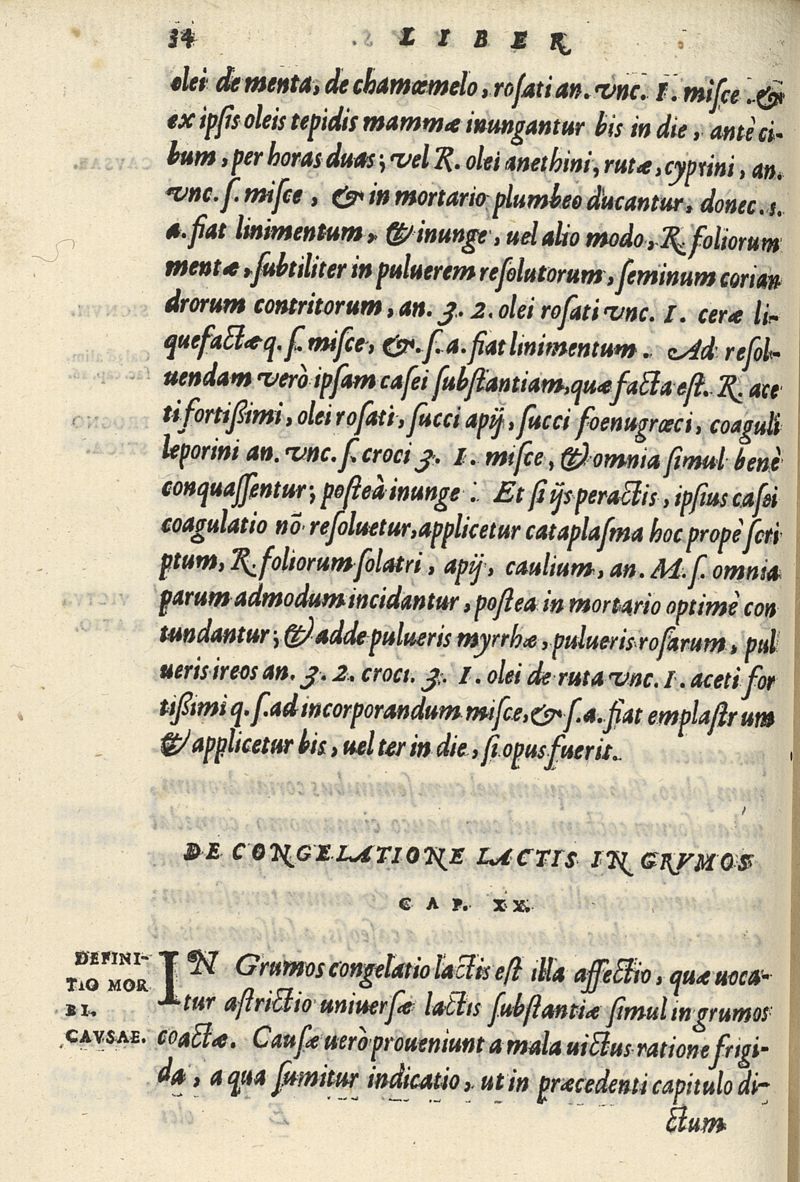 34 LIBER
olei de menta, de chamæmelo, rosati an. vnc. 1. misce. &
ex ipsis oleis tepidis mammæ inungantur bis in die, antè ci-
bum, per horas duas; vel R. olei anethini, rutæ, cyprini, an.
vnc. ſ. misce, & in mortario plumbeo ducantur, donec. s.
a. fiat linimentum, & inunge, uel alio modo, R. foliorum
mentæ, subtiliter in puluerem resolutorum, seminum corian
drorum contritorum, an. ʒ. 2. olei rosati vnc. 1. ceræ li-
quefactæ q. ſ. misce, &. ſ. a. fiat linimentum. Ad resol-
uendam verò ipsam casei substantiam, quæ facta est. R. ace
ti fortißimi, olei rosati, succi apij, succi foenugræci, coaguli
leporini an. vnc. ſ. croci ʒ. 1. misce, & omnia simul benè
conquassentur; posteà inunge. Et si ijs peractis, ipsius casei
coagulatio nō resoluetur, applicetur cataplasma hoc propè scri
ptum, R. foliorum solatri, apij, caulium, an. M. ſ. omnia
parum admodum incidantur, postea in mortario optimè con
tundantur; & adde pulueris myrrhæ, pulueris rosarum, pul
ueris ireos an. ʒ. 2. croci. ʒ. 1. olei de ruta vnc. 1. aceti for
tißimi q. ſ. ad incorporandum misce, & ſ. a. fiat emplastrum
& applicetur bis, uel ter in die, si opus fuerit.
DE CONGELATIONE LACTIS IN GRVMOS
CAP. XX.
DEFINI-
TIO MOR
BI.
CAVSAE.
IN Grumos congelatio lactis est illa affectio, quæ uoca-
tur astrictio uniuersæ lactis substantiæ simul in grumos
coactæ. Causæ uerò proueniunt a mala uictus ratione frigi-
da, a qua sumitur indicatio, ut in præcedenti capitulo di-
ctum